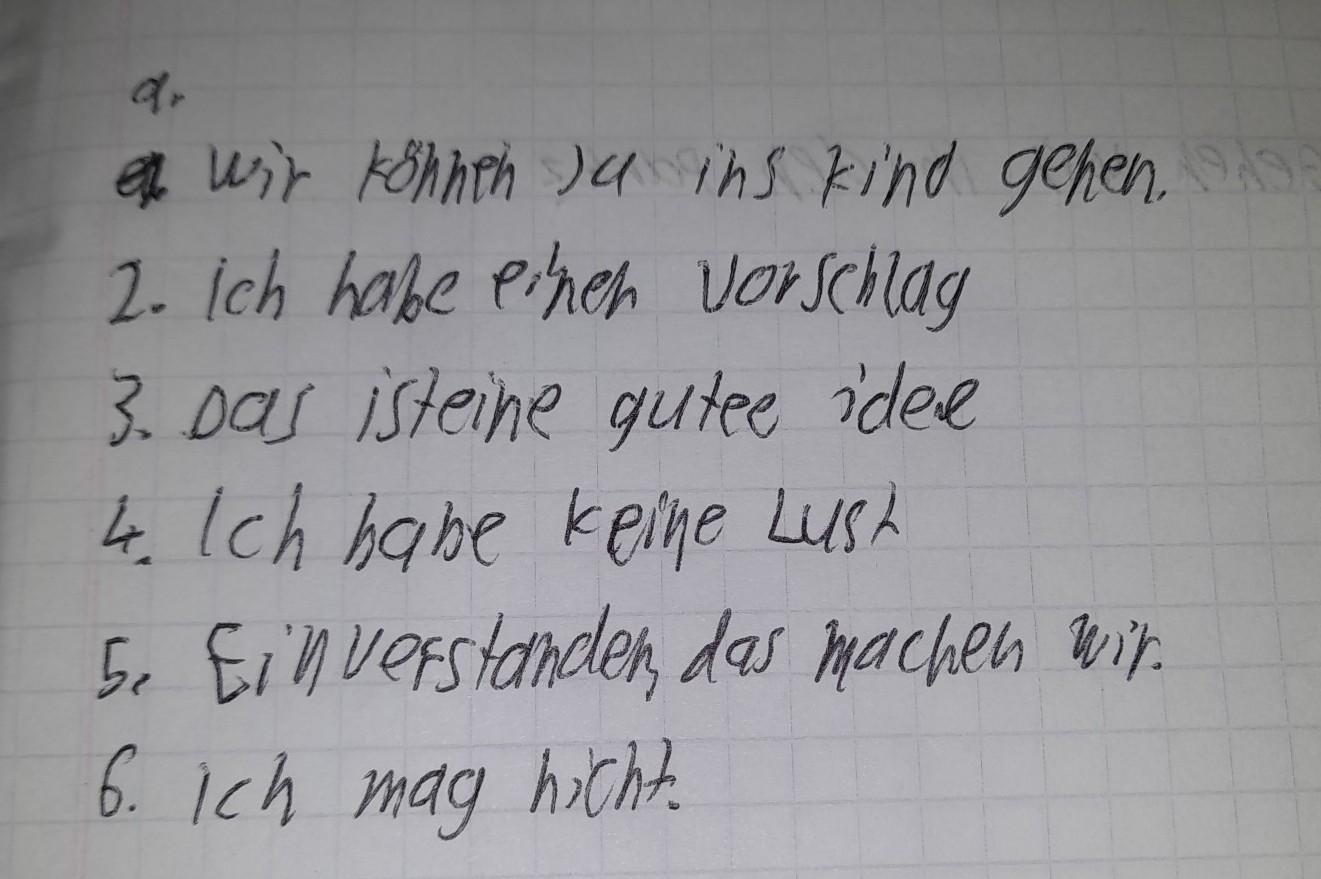 a.
wir können ja ins kind gehen.
2. ich habe einen vorschlag
3. Das isteine gutee idee
4. Ich habe keine Lust
5. Einverstanden, das machen wir.
6. ich mag nicht.